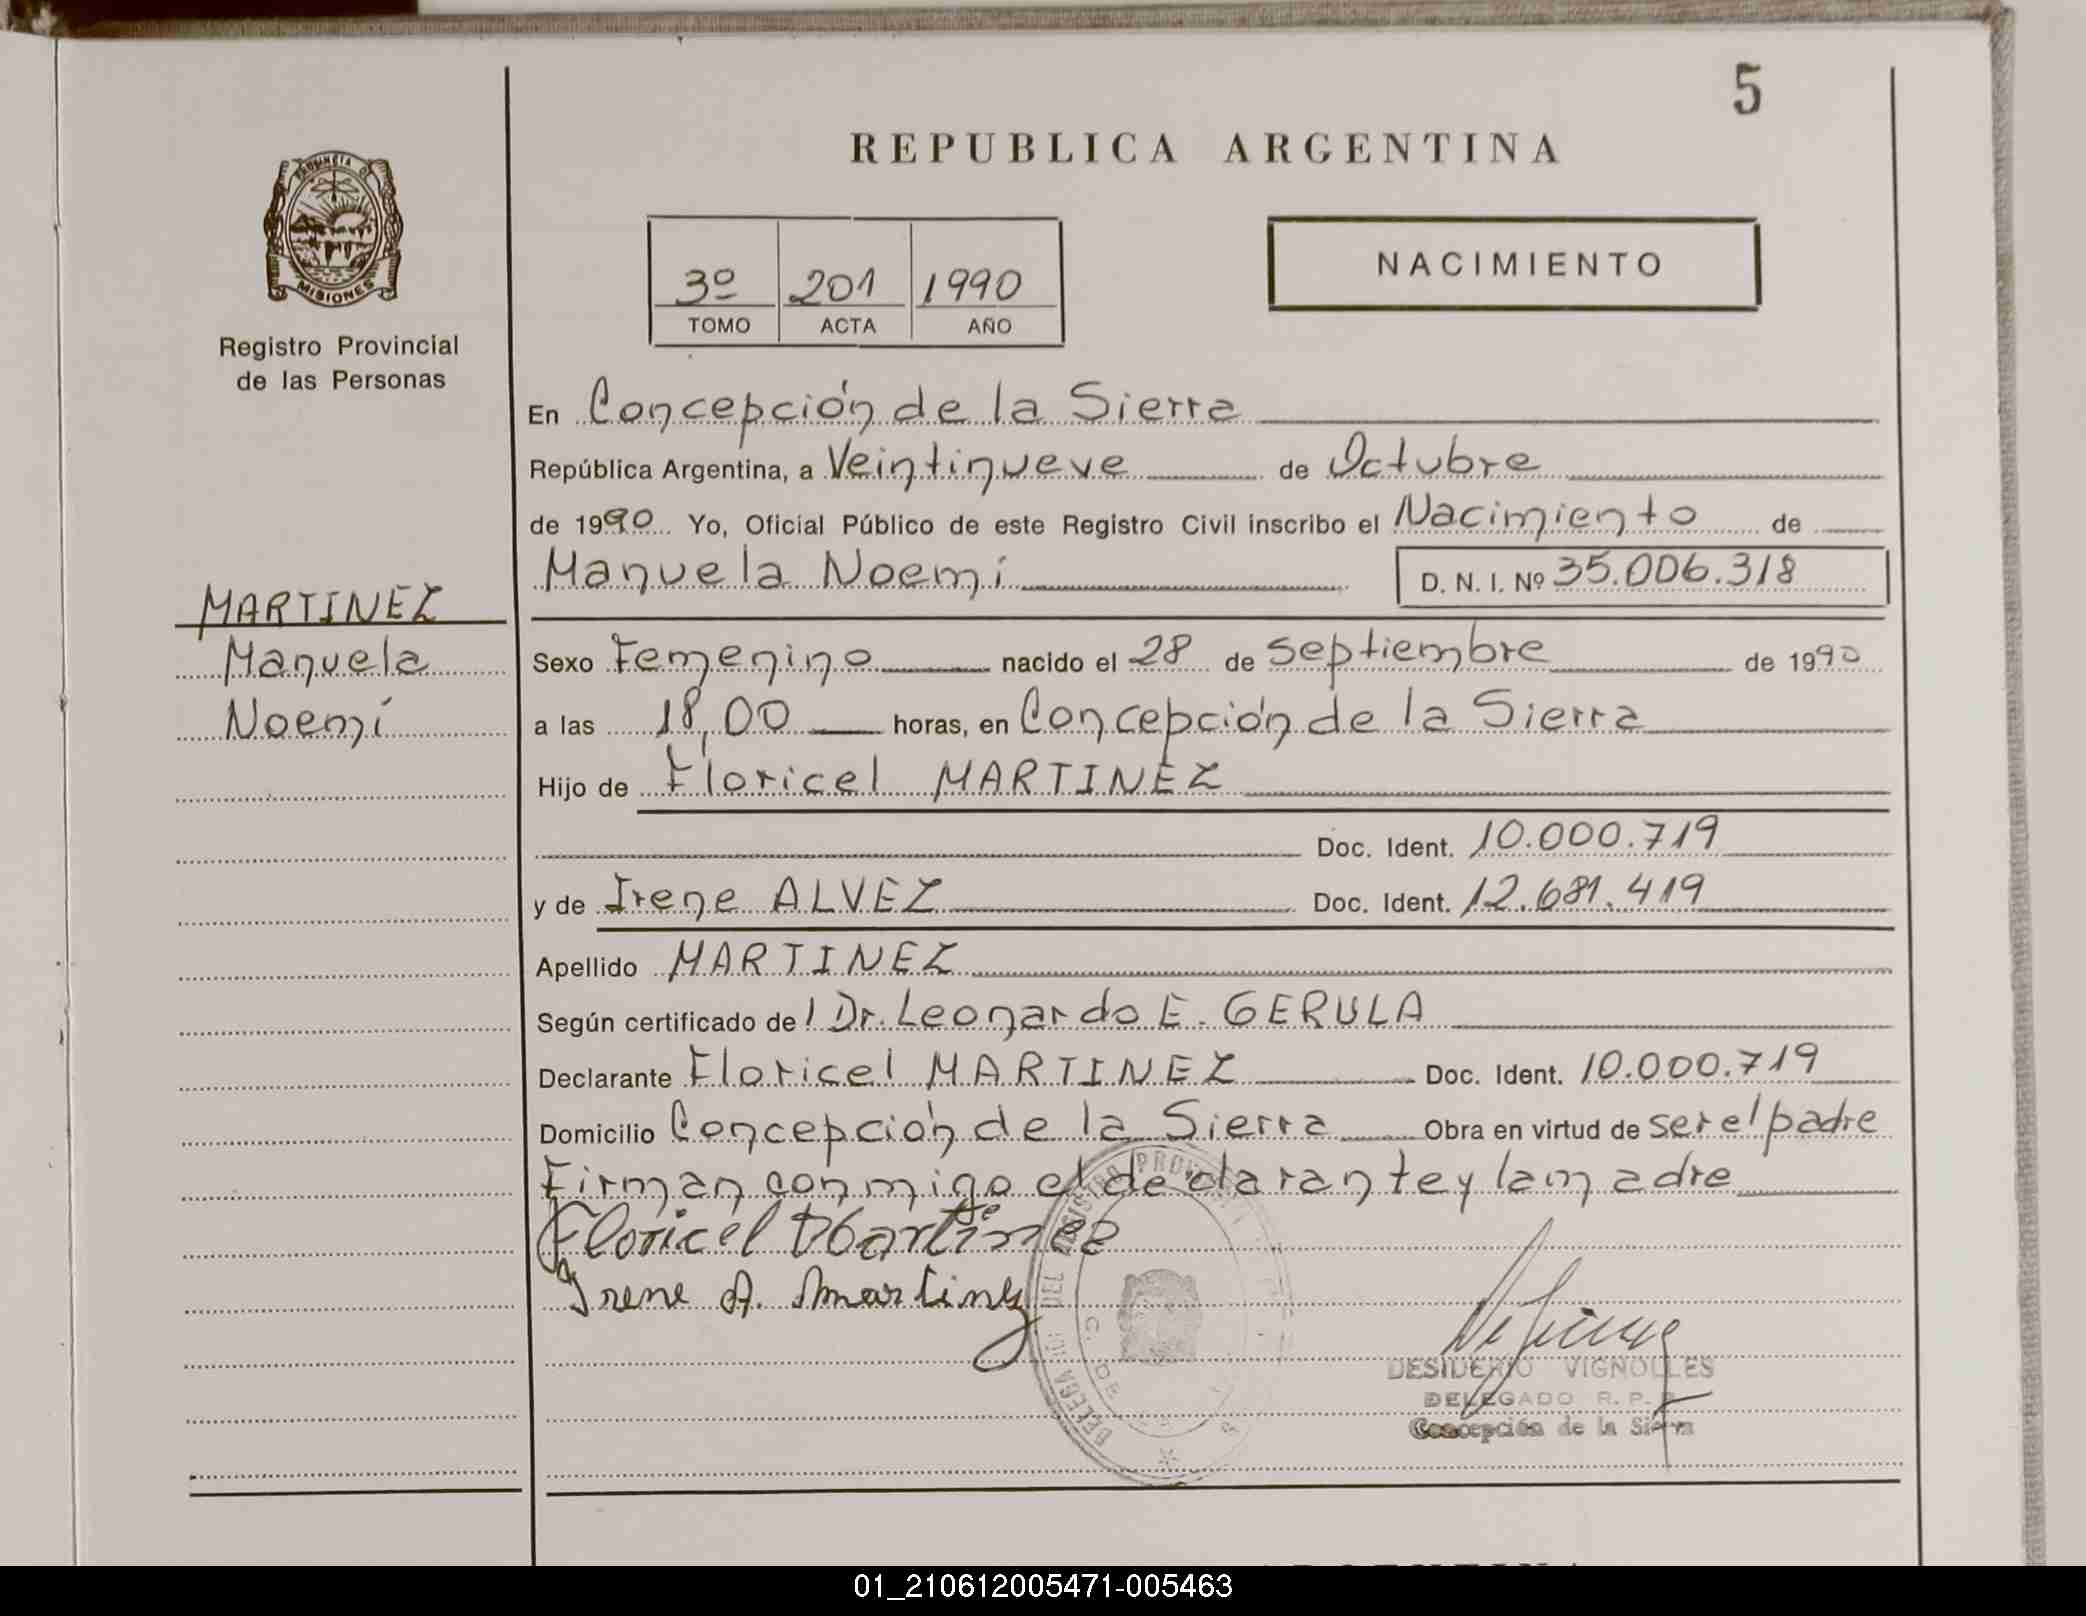 5
REPUBLICA ARGENTINA
PROVINCIA DE
MISIONES
Registro Provincial
de las Personas
3º 201 1990
TOMO ACTA AÑO
NACIMIENTO
En Concepción de la Sierra
República Argentina, a Veintinueve de Octubre
de 1990 Yo, Oficial Público de este Registro Civil inscribo el Nacimiento de
Manuela Noemí D. N. I. Nº 35.006.318
MARTINEZ
Manuela
Noemí
Sexo Femenino nacido el 28 de Septiembre de 1990
a las 18,00 horas, en Concepción de la Sierra
Hijo de Floricel MARTINEZ
Doc. Ident. 10.000.719
y de Irene ALVEZ Doc. Ident. 12.681.419
Apellido MARTINEZ
Según certificado de l Dr. Leonardo E. GERULA
Declarante Floricel MARTINEZ Doc. Ident. 10.000.719
Domicilio Concepción de la Sierra Obra en virtud de ser el padre
Firman conmigo el declarante y la madre
Floricel Martinez
Irene A. Martinez
DESIDERIO VIGNOLLES
DELEGADO R. P. P.
Concepción de la Sierra
01_210612005471-005463